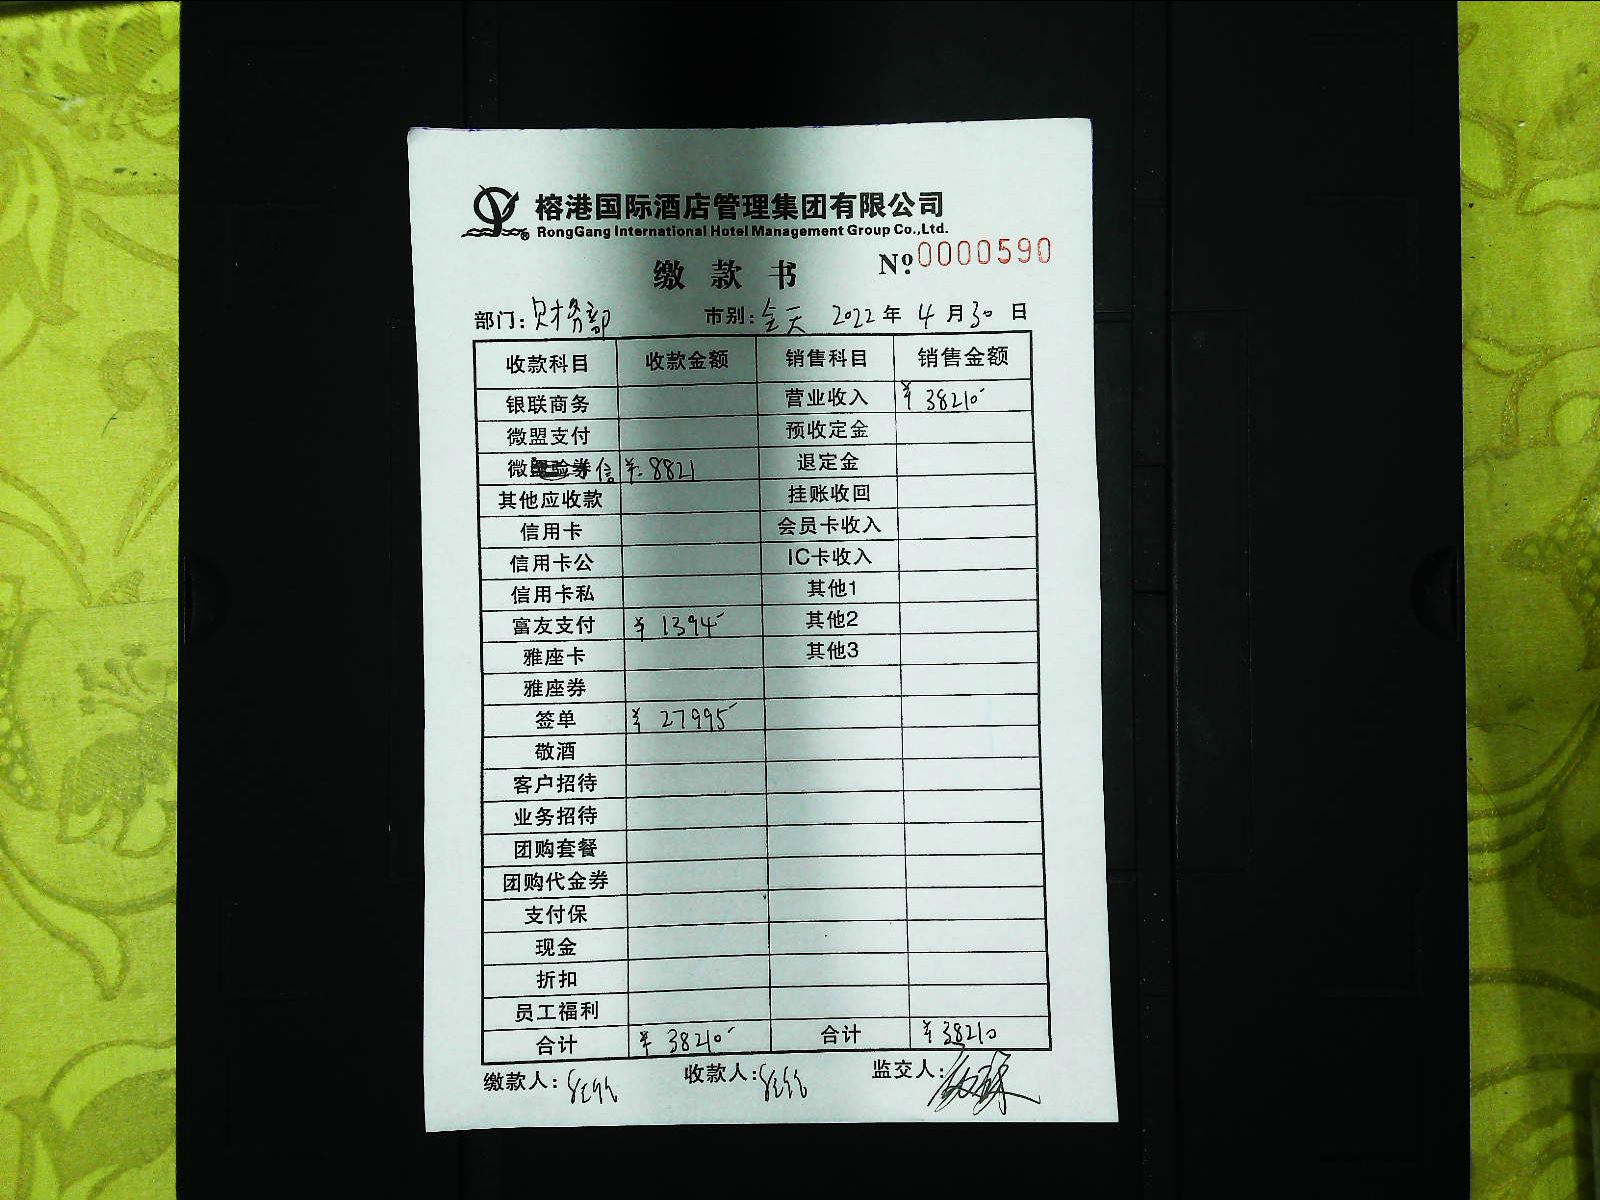 榕港国际酒店管理集团有限公司
RongGang International Hotel Management Group Co.,Ltd.
缴款书 № 0000590
部门: 财务部 市别: 全天 2022年4月30日
收款科目 收款金额 销售科目 销售金额
银联商务 营业收入 ¥38210
微盟支付 预收定金
微信 ¥8821 退定金
其他应收款 挂账收回
信用卡 会员卡收入
信用卡公 IC卡收入
信用卡私 其他1
富友支付 ¥1394 其他2
雅座卡 其他3
雅座券
签单 ¥27995
敬酒
客户招待
业务招待
团购套餐
团购代金券
支付保
现金
折扣
员工福利
合计 ¥38210 合计 ¥38210
缴款人: 收款人: 监交人: